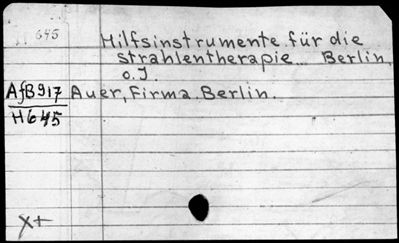 H 645
Hilfsinstrumente für die
Strahlentherapie... Berlin,
o.J.
AfB917 Auer, Firma. Berlin.
H645
X+